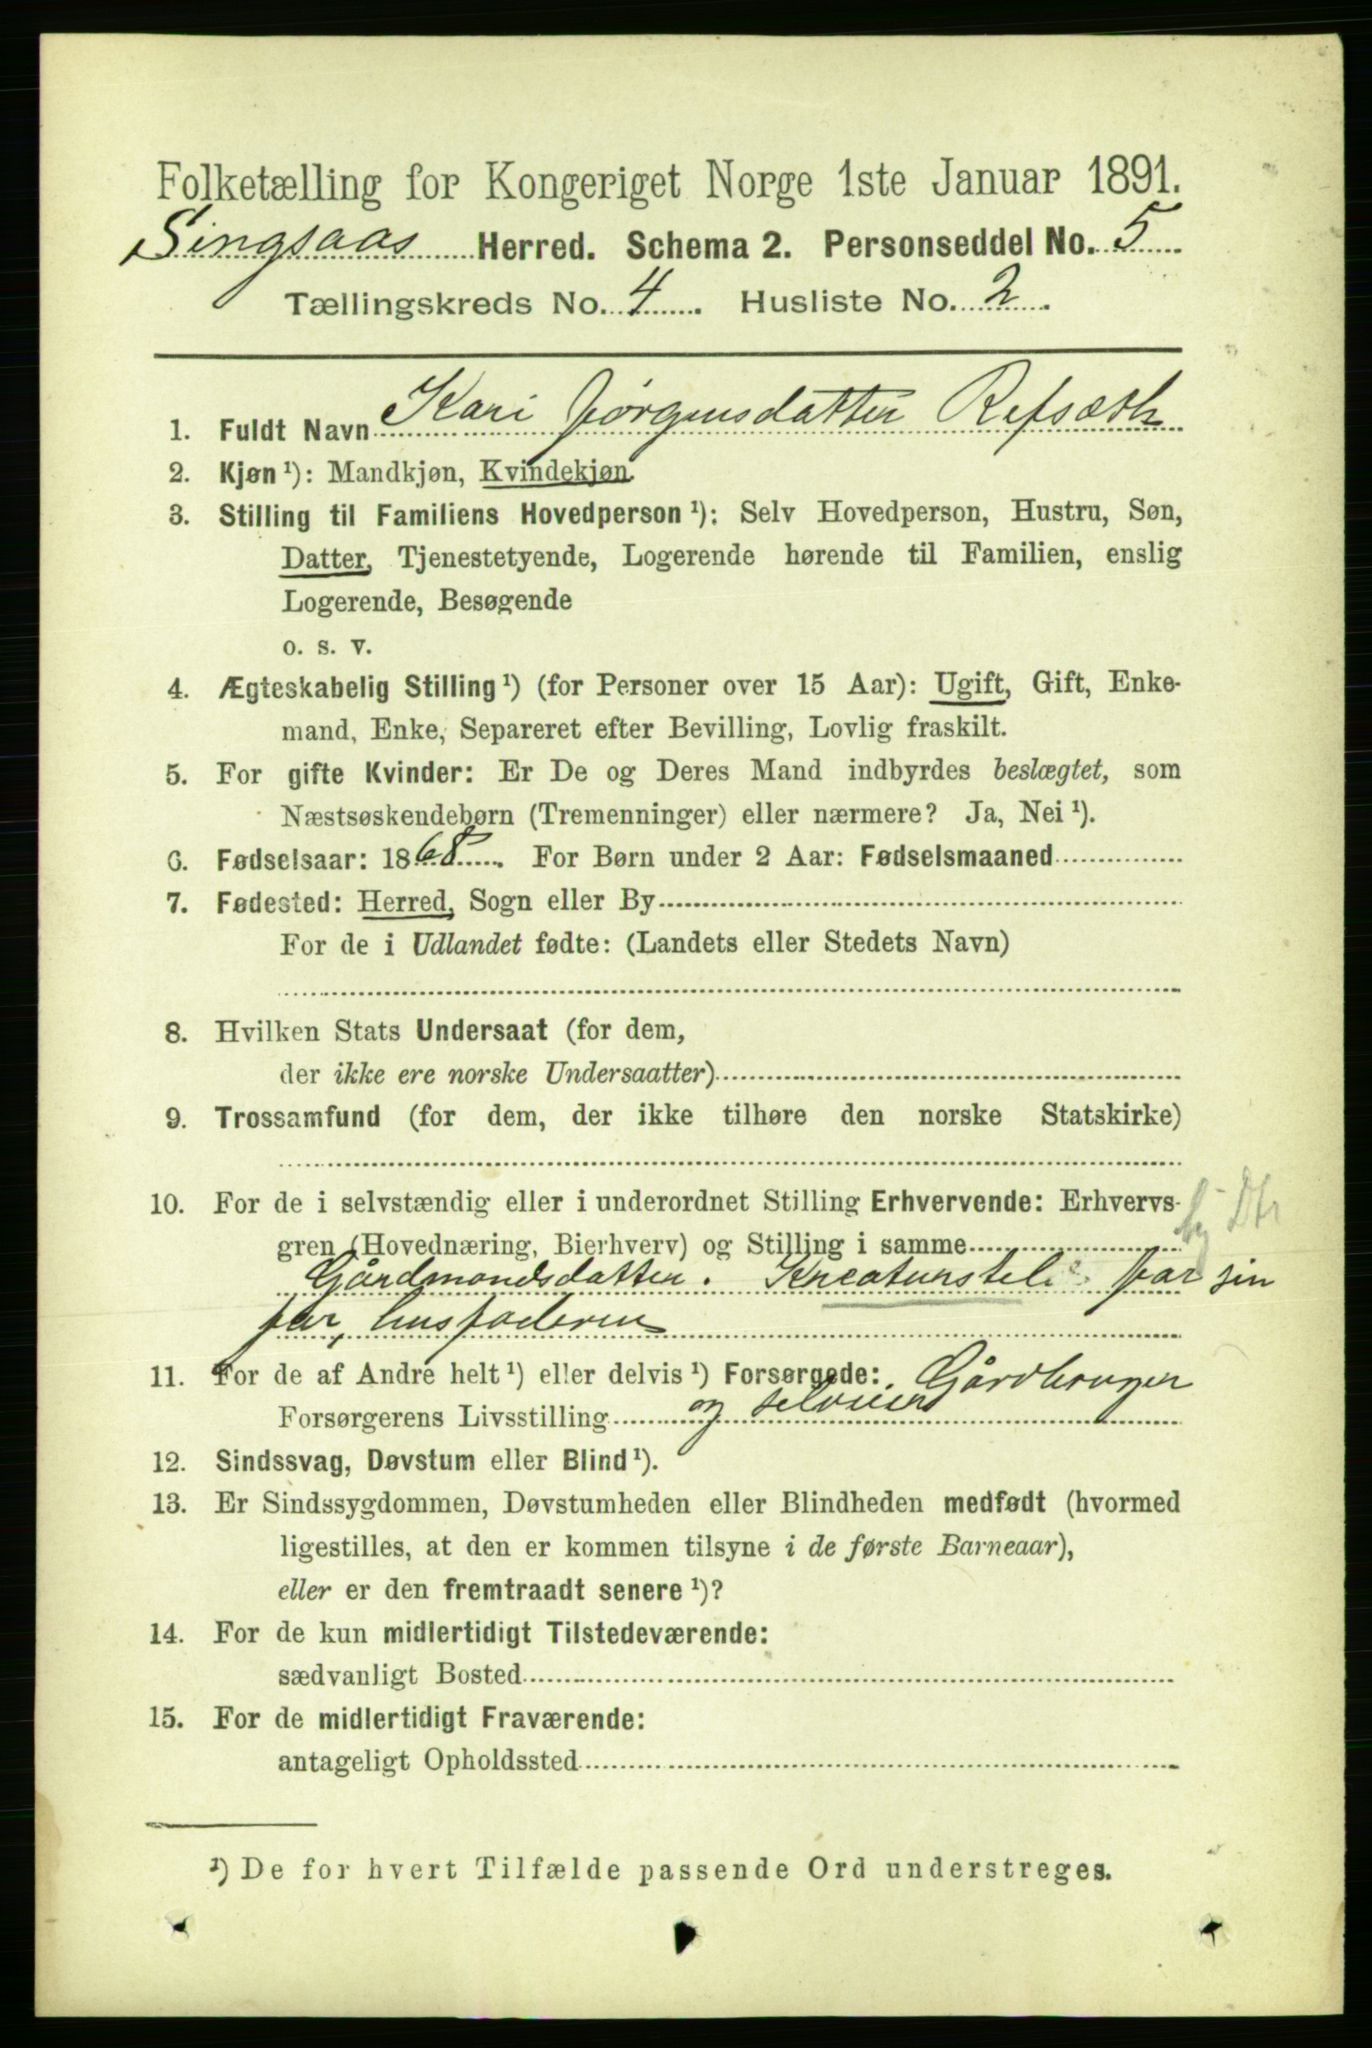 Folketælling for Kongeriget Norge 1ste Januar 1891.
Singsaas Herred. Schema 2. Personseddel No. 5
Tællingskreds No. 4. Husliste No. 2.
1. Fuldt Navn Kari Jørgensdatter Refsæth
2. Kjøn¹): Mandkjøn, Kvindekjøn.
3. Stilling til Familiens Hovedperson¹): Selv Hovedperson, Hustru, Søn,
Datter, Tjenestetyende, Logerende hørende til Familien, enslig
Logerende, Besøgende
o. s. v.
4. Ægteskabelig Stilling¹) (for Personer over 15 Aar): Ugift, Gift, Enke-
mand, Enke, Separeret efter Bevilling, Lovlig fraskilt.
5. For gifte Kvinder: Er De og Deres Mand indbyrdes beslægtet, som
Næstsøskendebørn (Tremenninger) eller nærmere? Ja, Nei¹).
6. Fødselsaar: 1868. For Børn under 2 Aar: Fødselsmaaned
7. Fødested: Herred, Sogn eller By
For de i Udlandet fødte: (Landets eller Stedets Navn)
8. Hvilken Stats Undersaat (for dem,
der ikke ere norske Undersaatter)
9. Trossamfund (for dem, der ikke tilhøre den norske Statskirke)
10. For de i selvstændig eller i underordnet Stilling Erhvervende: Erhvervs-
gren (Hovednæring, Bierhverv) og Stilling i samme
Gårdmandsdatter. Kreaturstel for sin
far, husfaderen
11. For de af Andre helt¹) eller delvis¹) Forsørgede: Gårdbruger
Forsørgerens Livsstilling og selveier
12. Sindssvag, Døvstum eller Blind¹).
13. Er Sindssygdommen, Døvstumheden eller Blindheden medfødt (hvormed
ligestilles, at den er kommen tilsyne i de første Barneaar),
eller er den fremtraadt senere¹)?
14. For de kun midlertidigt Tilstedeværende:
sædvanligt Bosted
15. For de midlertidigt Fraværende:
antageligt Opholdssted
¹) De for hvert Tilfælde passende Ord understreges.